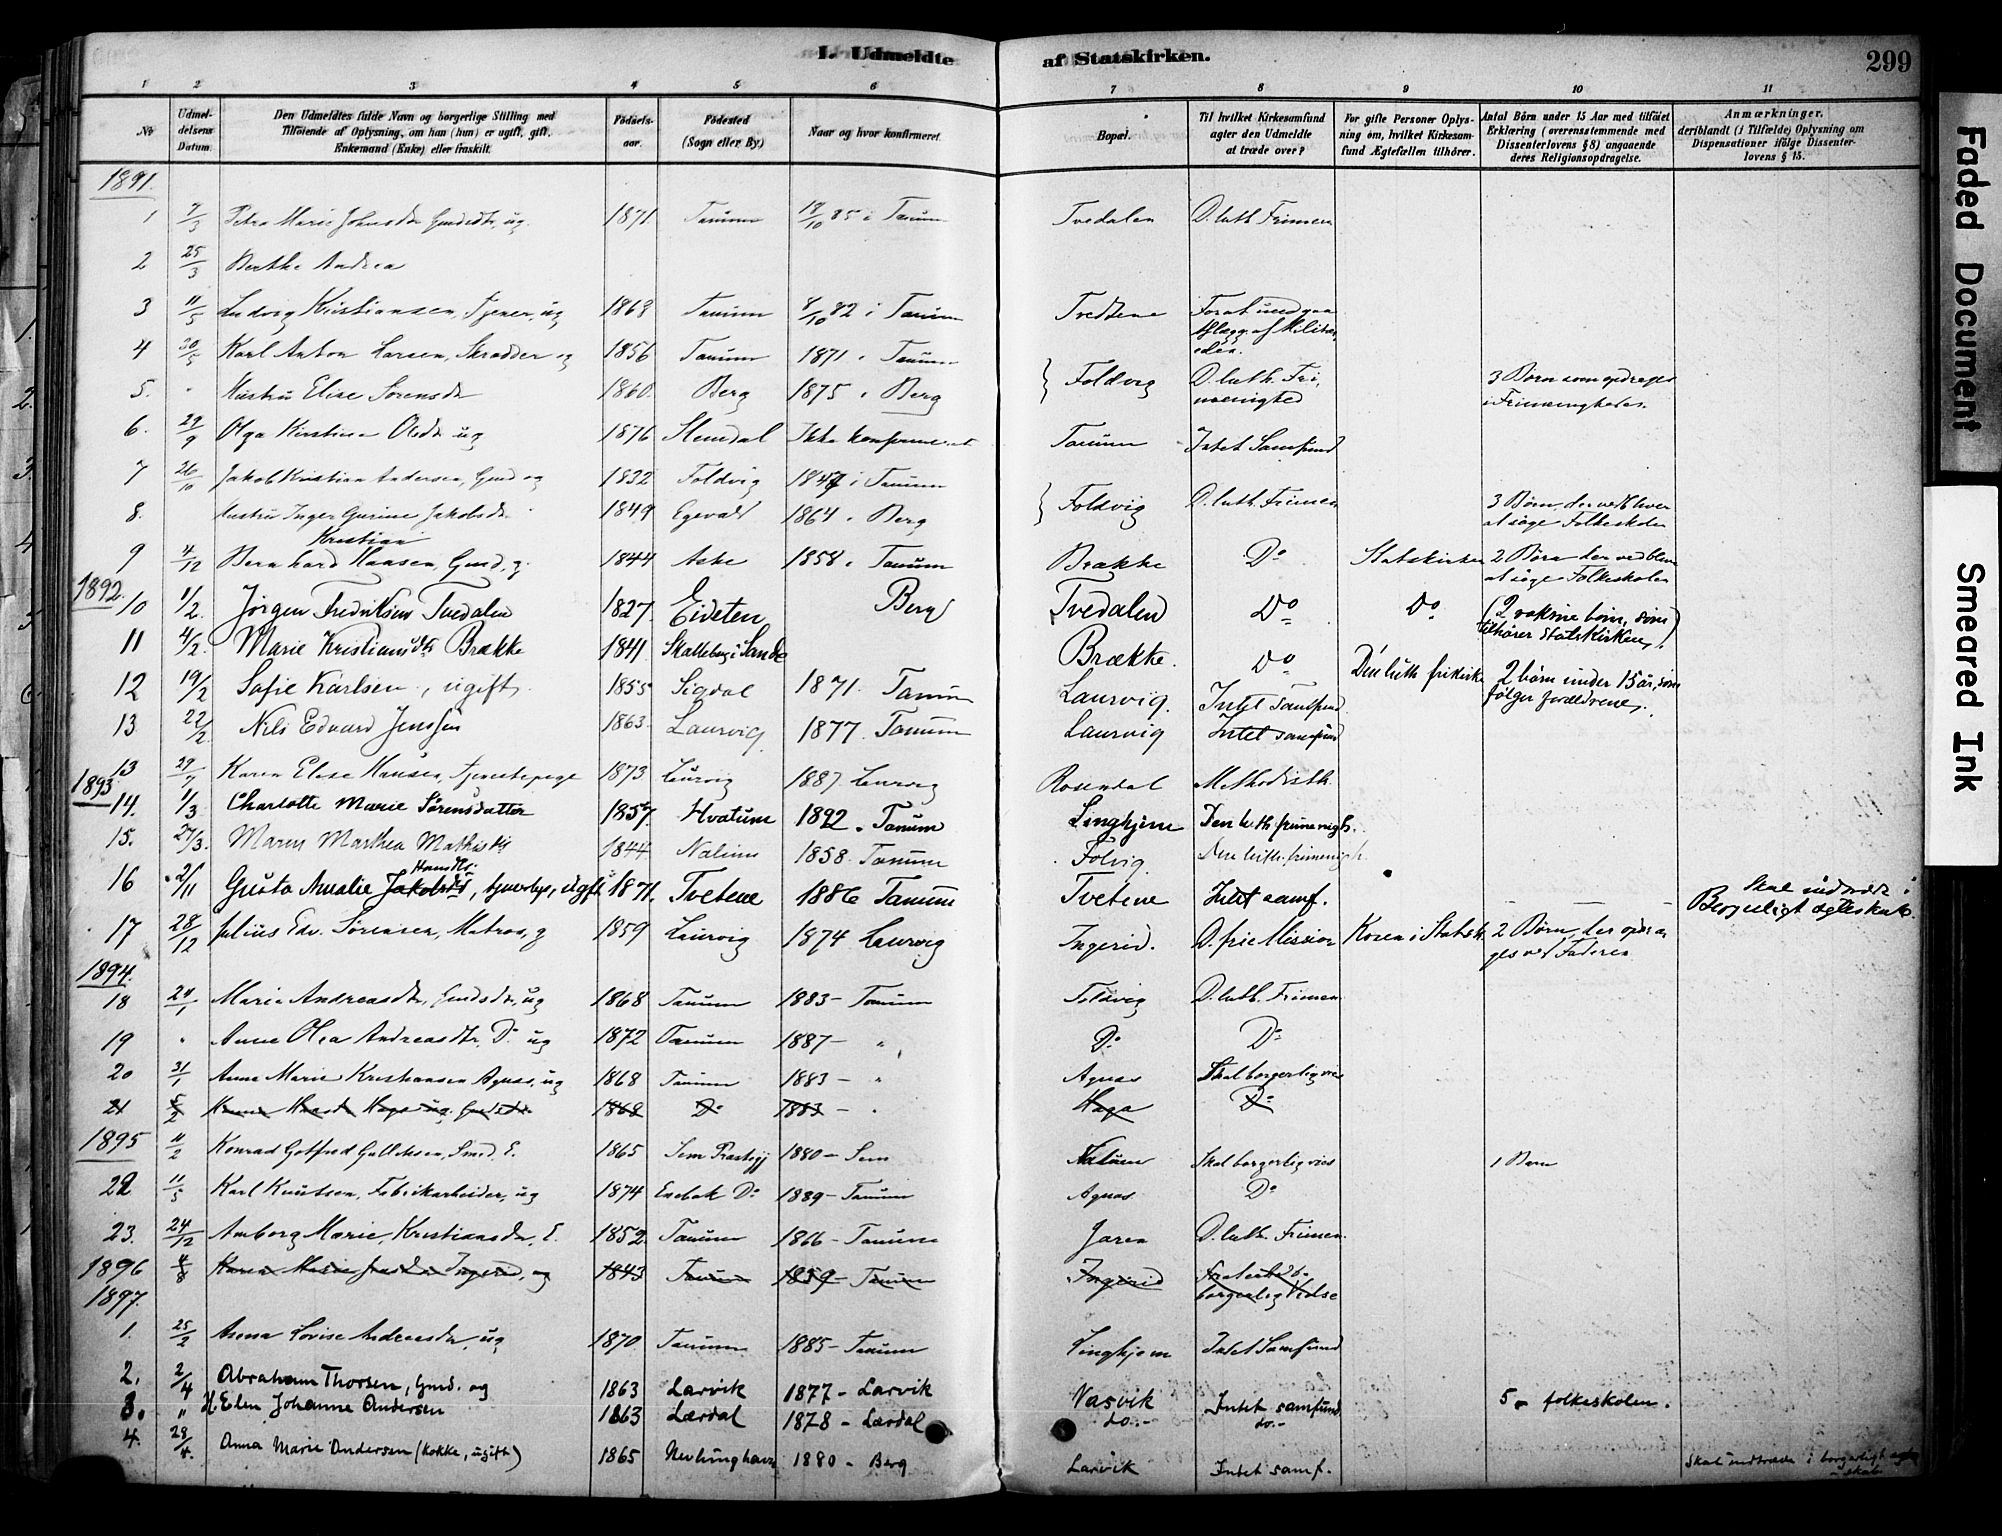 I. Udmeldte af Statskirken. 299
1 2 3 4 5 6 7 8 9 10 11
No
Udmeldelsens Datum.
Den Udmeldtes fulde Navn og borgerlige Stilling med Tilföiende af Oplysning, om han (hun) er ugift, gift, Enkemand (Enke) eller fraskilt.
Födselsaar.
Födested (Sogn eller By.)
Naar og hvor konfirmeret.
Bopæl.
Til hvilket Kirkesamfund agter den Udmeldte at træde over?
For gifte Personer Oplysning om, hvilket Kirkesamfund Ægtefællen tilhörer.
Antal Börn under 15 Aar med tilföiet Erklæring (overensstemmende med Dissenterlovens § 8) angaaende deres Religionsopdragelse.
Anmærkninger, deriblandt (i Tilfælde) Oplysning om Dispensationer ifölge Dissenterlovens § 15.
1891.
1 7/3 Petra Marie Johnsdtr ug. 1871 Tanum 18/10 85 i Tanum Tvedalen D. luth. Frimen
2 25/3 Berthe Andrea
3 11/5 Ludvig Kristiansen, Tjener, ug 1868 Tanum 8/10 82 i Tanum Tveddene
4 30/5 Karl Anton Larsen, Skrædder og 1856 Tanum 1871 " Tanum
5. " Hustru Elise Sørensdr 1860. Berg 1875 " Berg } Foldvig D. luth. Frimenighed 3 Børn som opdrages i Frimenigheden.
6. 29/9 Olga Kirstine Olsdr ug 1876 Slemdal Ikke konfirmeret Tanum Intet Samfund
7 26/10 Jakob Kristian Andersen, Gmd og 1832 Foldvig 1847 i Tanum
8. Hustru Inger Gurine Jakobsdr 1849 Egevald 1864 " Berg } Foldvig D. luth. Frimen 3 Børn, der vedbliver at søge Folkeskolen
Kristian
9 4/12 Bernhard Hansen, Gmd, g. 1844 Aske 1858 " Tanum Brække Do Statskirken 2 Børn der vedbliver at søge Folkeskolen
1892.
10 11/2. Jørgen Fredriksen Tvedalen 1827. Eideten Berg Tvedalen Do Do (2 voksne børn, som tilhører Statskirken)
11 4/2. Marie Kristiansdtr Brække 1841. Skalleberg i Sande Brække. Do Den luth frikirke 2 børn under 15 år, som følger forældrene.
12 19/2 Sofie Karlsen, ugift 1855 Sigdal 1871. Tanum Laurvig. Intet Samfund.
13 22/2. Nils Edvard Jenssen 1863. Laurvig 1877. Tanum Laurvig Intet samfund
13 29/7 Karen Elise Hansen, Tjenestepige 1873 Laurvig 1887. Laurvig Rosendal Methodisth.
1893
14. 1/3 Charlotte Marie Sørensdatter 1857. Hvatum 1892 " Tanum Linghjem Den luth. frimenigh.
15. 27/3. Maren Marthea Mathisdtr 1844 Nalum 1858. Tanum Folvig Den luth. frimenigh.
16 2/11 Gusta Amalie Jakobsdtr, tjenestep., ugift 1871. Tvetene 1886 Tanum Tvetene Intet samf. — — Skal indtræde i Borgerligt ægteskab.
17 28/12 Julius Edv. Sørensen, Matros, g 1859 Laurvig 1874 Laurvig Ingerid. D. frie Mission Konen i Statsk. 2 Børn, der opdrages ved Faderen
1894.
18 24/1 Marie Andreasdtr, Gmdsdr, ug 1868 Tanum 1883 - Tanum Foldvig D. luth. Frimen
19 " Anne Olea Andreasdtr. Do ug 1872 Tanum 1887 - " Do Do
20 31/1 Anne Marie Kristiansen Agnæs, ug 1868 Tanum 1883 - " Agnæs Skal borgerlig vies
21 5/2 1868 Do 1883 - " Haga Do
1895 11/2 Konrad Gotfred Gullichsen, Smed, E. 1865 Sem Præstegj 1880 - Sem Nalum Skal borgerlig vies 1 Barn
22 11/5 Karl Knutsen, Fabrikarbeider, ug 1874 Enebak Do 1889 - Tanum Agnæs Do
23. 24/12 Anborg Marie Kristiansdr, E. 1852. Tanum 1866 - Tanum Jaren D. luth. Frimen.
1896 4/8 Karen Marie Ingerid, ug 1843 Tanum 1859 - Tanum Ingerid borgerlig Vielse
1897.
1. 25/2 Anna Lovise Andreasdr, ug 1870 Tanum 1885 - Tanum Linghjem Intet Samfund
2. 2/4 Abraham Thorsen, Gmd. og 1863 Larvik 1877 - Larvik Vasvik Intet samfund 5 - folkeskolen.
3. " H. Elen Johanne Andersen 1863 Lærdal 1878 - Lærdal do.- do.-
4. 28/4. Anna Marie Andersen (kokke, ugift) 1865 Nevlunghavn 1880 - Berg Larvik Intet samf. Skal indtræde i borgerligt ægteskab
Faded Document
Smeared Ink